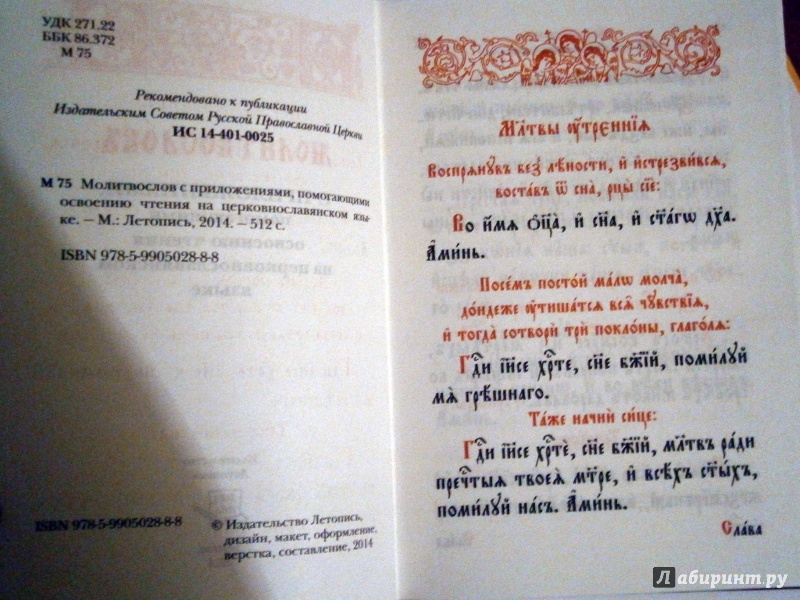 УДК 271.22
ББК 86.372
М 75
Рекомендовано к публикации
Издательским Советом Русской Православной Церкви
ИС 14-401-0025
М 75 Молитвослов с приложениями, помогающими
освоению чтения на церковнославянском язы-
ке. – М.: Летопись, 2014. – 512 с.
ISBN 978-5-9905028-8-8
ISBN 978-5-9905028-8-8
© Издательство Летопись,
дизайн, макет, оформление,
верстка, составление, 2014
Мл҃твы ᲂу҆́трєннїѧ
Воспрѧ́нꙋвъ без̾ лѣ́ности, и҆ и҆стрезви́всѧ,
воста́въ ѿ сна̀, рцы̀ сїѐ:
Во и҆́мѧ ѻ҆ц҃а̀, и҆ сн҃а, и҆ ст҃а́гѡ дх҃а.
А҆ми́нь.
Посе́мъ посто́й ма́лѡ молча̀,
до́ндеже ᲂу҆тиша́тсѧ всѧ̑ чꙋ̑вствїѧ,
и҆ тогда̀ сотворѝ трѝ покло́ны, глаго́лѧ:
Гдⷭ҇и і҆и҃се хрⷭ҇те́, сн҃е бж҃їй, поми́лꙋй
мѧ̀ грѣ́шнаго.
Та́же начнѝ си́це:
Гдⷭ҇и і҆и҃се хрⷭ҇тѐ, сн҃е бж҃їй, мл҃твъ ра́ди
пречⷭ҇тыѧ твоеѧ̀ мт҃ре, и҆ всѣ́хъ ст҃ы́хъ,
поми́лꙋй на́съ. А҆ми́нь.
Сла́ва
Лабиринт.ру